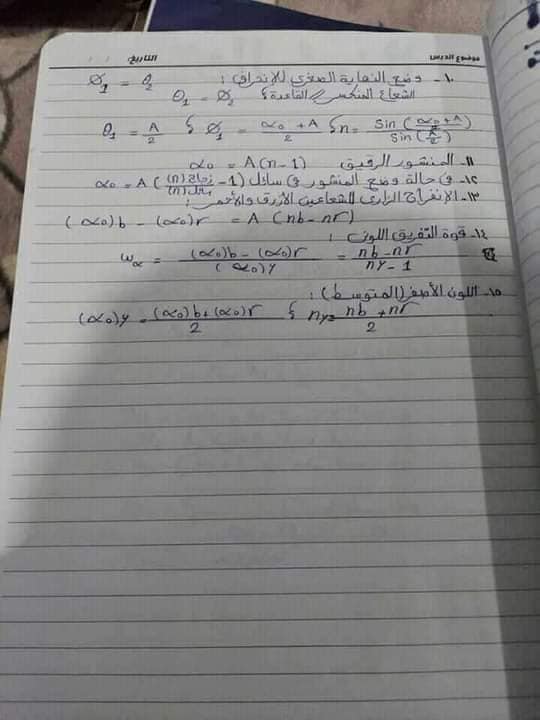 موضوع الدرس التاريخ / /
١٠- وضع النهاية الصغرى للإنحراف : Ø₁ = θ₂
الشعاع المنكسر // القاعدة ؟ θ₁ = Ø₂
θ₁ = A/2 ؟ Ø₁ = (α₀ + A)/2 ؟ n = Sin((α₀ + A)/2) / Sin(A/2)
١١- المنشور الرقيق α₀ = A(n-1)
١٢- في حالة وضع المنشور في سائل α₀ = A((n)زجاج/(n)سائل - 1)
١٣- الإنفراج الزاوى للشعاعين الأزرق والأحمر :
(α₀)b - (α₀)r = A (nb - nr)
١٤- قوة التفريق اللونى :
ωα = ((α₀)b - (α₀)r)/(α₀)y = (nb - nr)/(ny - 1)
١٥- اللون الأصفر (المتوسط) :
(α₀)y = ((α₀)b + (α₀)r)/2 ؟ ny = (nb + nr)/2